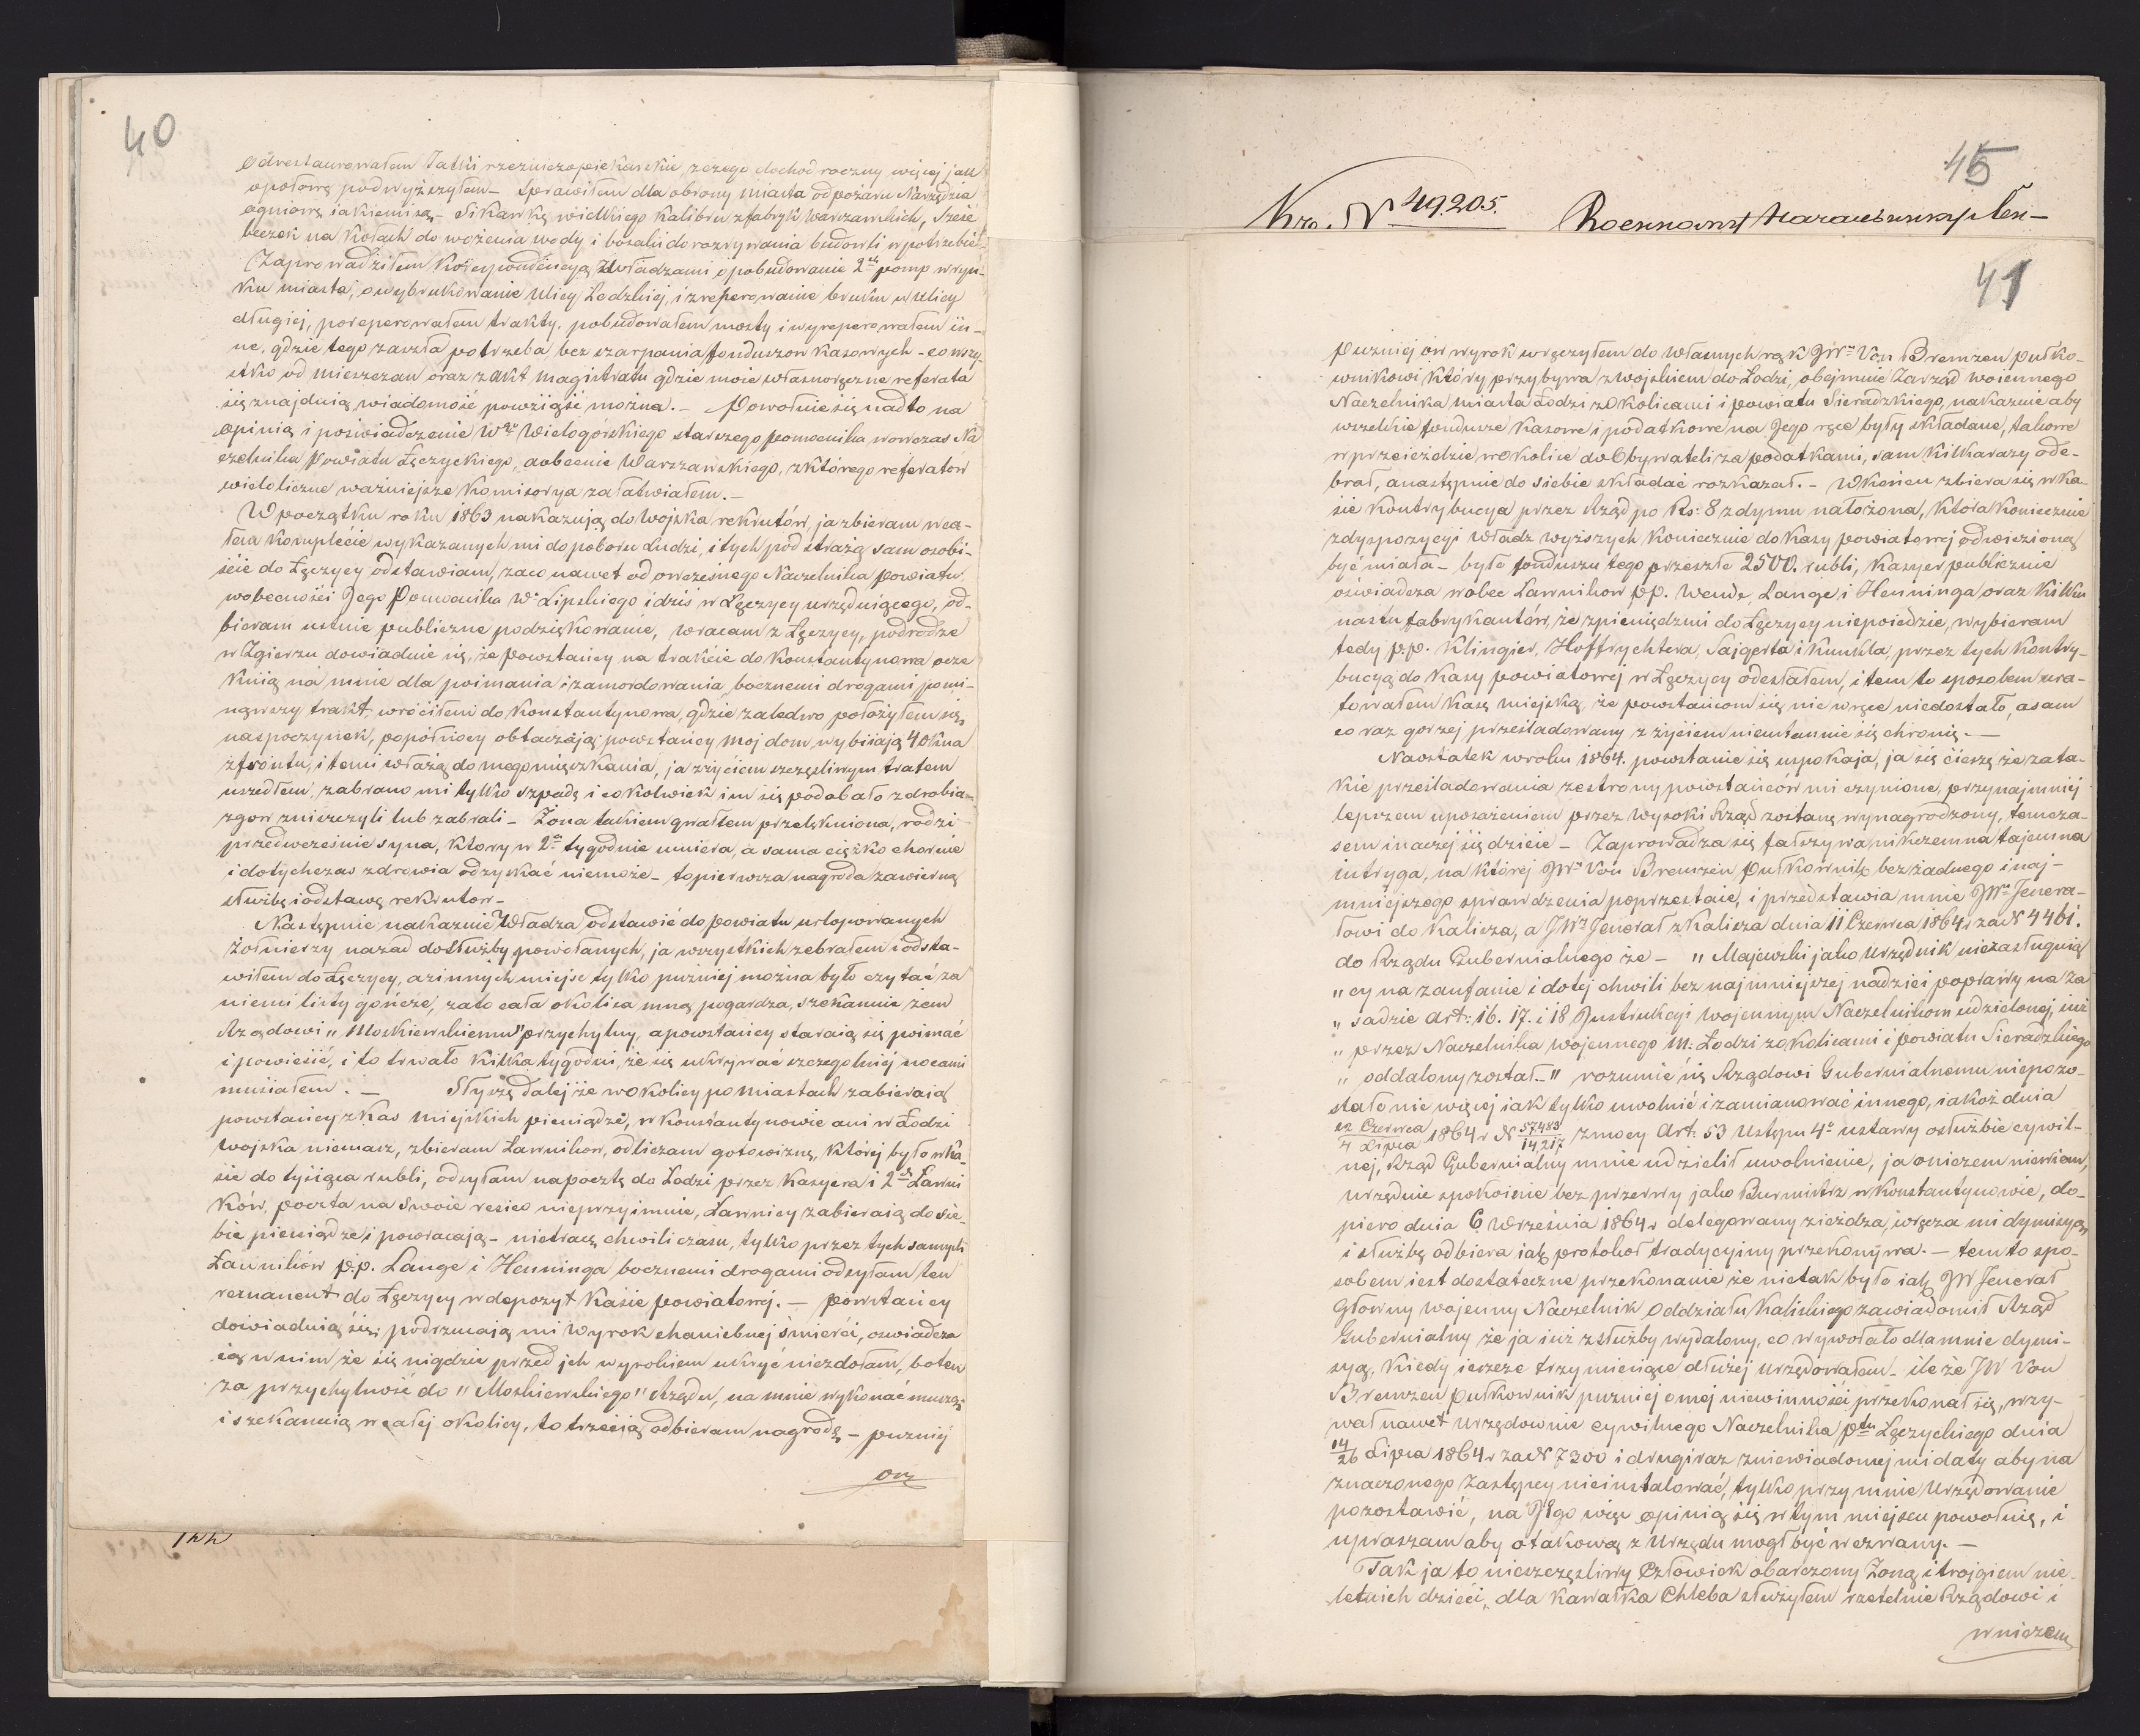 40
Odrestaurowałem Jatki rzezniczopiekarskie zczego dochod roczny więcej jak
opołowę podwyższyłem – Sprawiłem dla obrony miasta odpożaru Narzędzia
ogniowe iakiemi są – Sikawkę wielkiego Kalibru zfabryk Warszawskich, Sześć
beczek na Kołach do wożenia wody i bosaki do rozrywania budowli wpotrzebie –
Zaprowadziłem Korespondencyą zWładzami o pobudowanie 2ch pomp wryn-
ku miasta, o wybrukowanie Ulicy Łodzkiej, i zreperowanie bruku w Ulicy
długiej, poreperowałem trakty, pobudowałem mosty i wyreperowałem in-
ne, gdzie tego zaszła potrzeba bez szarpania funduszow Kasowych – co wszy-
stko od mieszczan oraz z akt magistratu gdzie moie własnoręczne referata
się znajduią wiadomość powziąść można. – Powołuie się nadto na
opinią i poświadczenie Wgo Wielogórskiego starszego pomocnika wowczas Na
czelnika Powiatu Łęczyckiego, aobecnie Warszawskiego, zktórego referatow
wieloliczne ważniejsze Komisorya załatwiałem. –
W początku roku 1863 nakazują do Wojska rekrutów, ja zbieram wca-
łem Komplecie wykazanych mi do poboru Ludzi, i tych pod strażą sam osobi-
ście do Łęczycy odstawiam, zaco nawet od owczesnego Naczelnika Powiatu
wobecności Jego Pomocnika Wo Lipskiego i dziś w Łęczycy urzęduiącego, od-
bieram ustnie publiczne podziękowanie, wracam z Łęczycy, podrodze
w Zgierzu dowiaduie się, że powstańcy na trakcie do Konstantynowa ocze
kuią na mnie dla poimania i zamordowania, bocznemi drogami pomi-
nąwszy trakt, wróciłem do Konstantynowa, gdzie zaledwo położyłem się
naspoczynek, popołnocy obtaczają powstańcy moj dom, wybijają 4 okna
zfrontu, i temi włażą do mego mięszkania, ja zżyciem szczęsliwym trafem
uszedłem, zabrano mi tylko szpadę i cokolwiek im się podobało zdrobia-
zgow zniszczyli lub zabrali – Żona takiem gwałtem przelękniona, rodzi
przedwcześnie syna, ktory w 2ch tygodnie umiera, a sama ciężko choruie
i dotychczas zdrowia odzyskać niemoże – to pierwsza nagroda zawierną
służbę i odstawę rekrutow –
Następnie nakazuie Władza odstawić do powiatu urlopowanych
żołnierzy nazad do służby powołanych, ja wszystkich zebrałem i odsta-
wiłem do Łęczycy, azinnych miejsc tylko puzniej można było czytać za
niemi listy gończe, zato cała okolica mną pogardza, szekanuie żem
Rządowi „Moskiewskiemu" przychylny, apowstańcy staraią się poimać
i powiesić, i to trwało Kilka tygodni, że się ukrywać szczegolniej nocami
musiałem. – Słyszę dalej że wokolicy po miastach zabieraią
powstańcy zKas miejskich pieniądze, w Konstantynowie ani w Łodzi
Wojska niemasz, zbieram Ławnikow, odliczam gotowiznę, Której było wKa-
sie do tysiąca rubli, odsyłam napocztę do Łodzi przez Kasyera i 2ch Ławni
ków, poczta na Swoie resico nieprzyimuie, Ławnicy zabieraią do sie-
bie pieniądze i powracają – nietracę chwili czasu, tylko przez tych samych
Ławników p.p. Lange i Henninga bocznemi drogami odsyłam ten
remanent do Łęczycy wdepozyt Kasie powiatowej. – powstańcy
dowiaduią się, podrzucają mi Wyrok chaniebnej śmierci, oswiadcza
iąc wnim że się nigdzie przed ich wyrokiem ukryć niezdołam, bo ten
za przychylność do „Moskiewskiego" Rządu, na mnie wykonać muszą,
i szekanuią wcałej okolicy, to trzecią odbieram nagrodę – puzniej
ow
45
Nro. N 49205.
41
Puzniej ow wyrok wręczyłem do własnych rąk JWo Von Bremzen pułko-
wnikowi Który przybywa zWojskiem do Łodzi, obejmuie Zarząd woiennego
Naczelnika miasta Łodzi zOkolicami i powiatu Sieradzkiego, nakazuie aby
wszelkie fundusze Kasowe i podatkowe na Jego ręce były składane, takowe
w przeieździe wokolice do Obywateli za podatkami, sam Kilkarazy ode-
brał, anastępnie do siebie składać rozkazał. – Wkońcu zbiera się wKa-
sie Kontrybucya przez Rząd po Rs: 8 zdymu nałożona, Która Koniecznie
zdyspozycyi Władz wyższych Koniecznie do Kasy powiatowej odwiezioną
być miała – było funduszu tego przeszło 2500. rubli, Kasyer publicznie
oświadcza wobec Ławnikow p.p. Wende, Lange, i Henninga oraz Kilku
nastu fabrykantów, że zpieniędzmi do Łęczycy niepoiedzie, wybieram
tedy p.p. Klingier, Hoffrychtera, Sajgerta i Kunkla, przez tych Kontry-
bucyą do Kasy powiatowej w Łęczycy odesłałem, i tem to sposobem ura-
towałem Kasę miejską, że powstańcom się nie wręce niedostało, asam
co raz gorzej prześladowany z życiem nieustannie się chronię. –
Naostatek wroku 1864. powstanie się uspokaja, ja się cieszę że za ta-
kie prześladowania zestrony powstańców mi czynione, przynajmniej
lepszem uposażeniem przez Wysoki Rząd zostanę wynagrodzony, tymcza-
sem inaczej się dzieie – Zaprowadza się fałszywa, nikczemna tajemna
intryga, na której JWo Von Bremzen Pułkownik bez żadnego i naj-
mniejszego sprawdzenia poprzestaie, i przedstawia mnie JWo Jenera-
łowi do Kalisza, a JWy Jenerał zKalisza dnia 11 Czerwca 1864 r. za N 4461.
do Rządu Gubernialnego że – „Majewski jako Urzędnik niezasługuią
„cy na zaufanie i dotej chwili bez najmniejszej nadziei poprawy na za
„sadzie Art: 16. 17. i 18 Instrukcyi Wojennym Naczelnikom udzielonej, iuż
„przez Naczelnika Wojennego M: Łodzi zokolicami i powiatu Sieradzkiego
„oddalony został –" rozumie się Rządowi Gubernialnemu niepozo-
stało nie więcej iak tylko uwolnić i zamianować innego, iakoż dnia
22 Czerwca / 4 Lipca 1864 r N 57483/14217 zmocy Art. 53 Ustępu 4o ustawy osłużbie cywil-
nej, Rząd Gubernialny mnie udzielił uwolnienie, ja oniczem niewiem,
urzęduie spokoinie bez przerwy jako Burmistrz w Konstantynowie, do-
piero dnia 6 Września 1864 r delegowany zieżdza, wręcza mi dymisyą,
i służbę odbiera iak protokoł tradycyjny przekonywa. – tem to spo-
sobem iest dostateczne przekonanie że nietak było iak JW Jenerał
Głowny wojenny Naczelnik Oddziału Kaliskiego zawiadomił Rząd
Gubernialny że ja iuż zsłużby wydalony, co wywołało dla mnie dymi-
syą, Kiedy ieszcze trzy miesiące dłużej urzędowałem – ile że JW Von
Bremzen Pułkownik puzniej omej niewinności przekonał się, wzy-
wał nawet Urzędownie cywilnego Naczelnika ptu Łęczyckiego dnia
14/26 Lipca 1864 r za N 7300 i drugi raz zniewiadomej mi daty aby na
znaczonego Zastępcy nieinstalować, tylko przy mnie Urzędowanie
pozostawić, na Jego więc opinią się wtym miejscu powołuię, i
upraszam aby otakową z Urzędu mogł być wezwany. –
Tak ja to nieszczęsliwy Człowiek obarczony Żoną i trojgiem nie-
letnich dzieci, dla Kawałka Chleba służyłem rzetelnie Rządowi i
wniczem